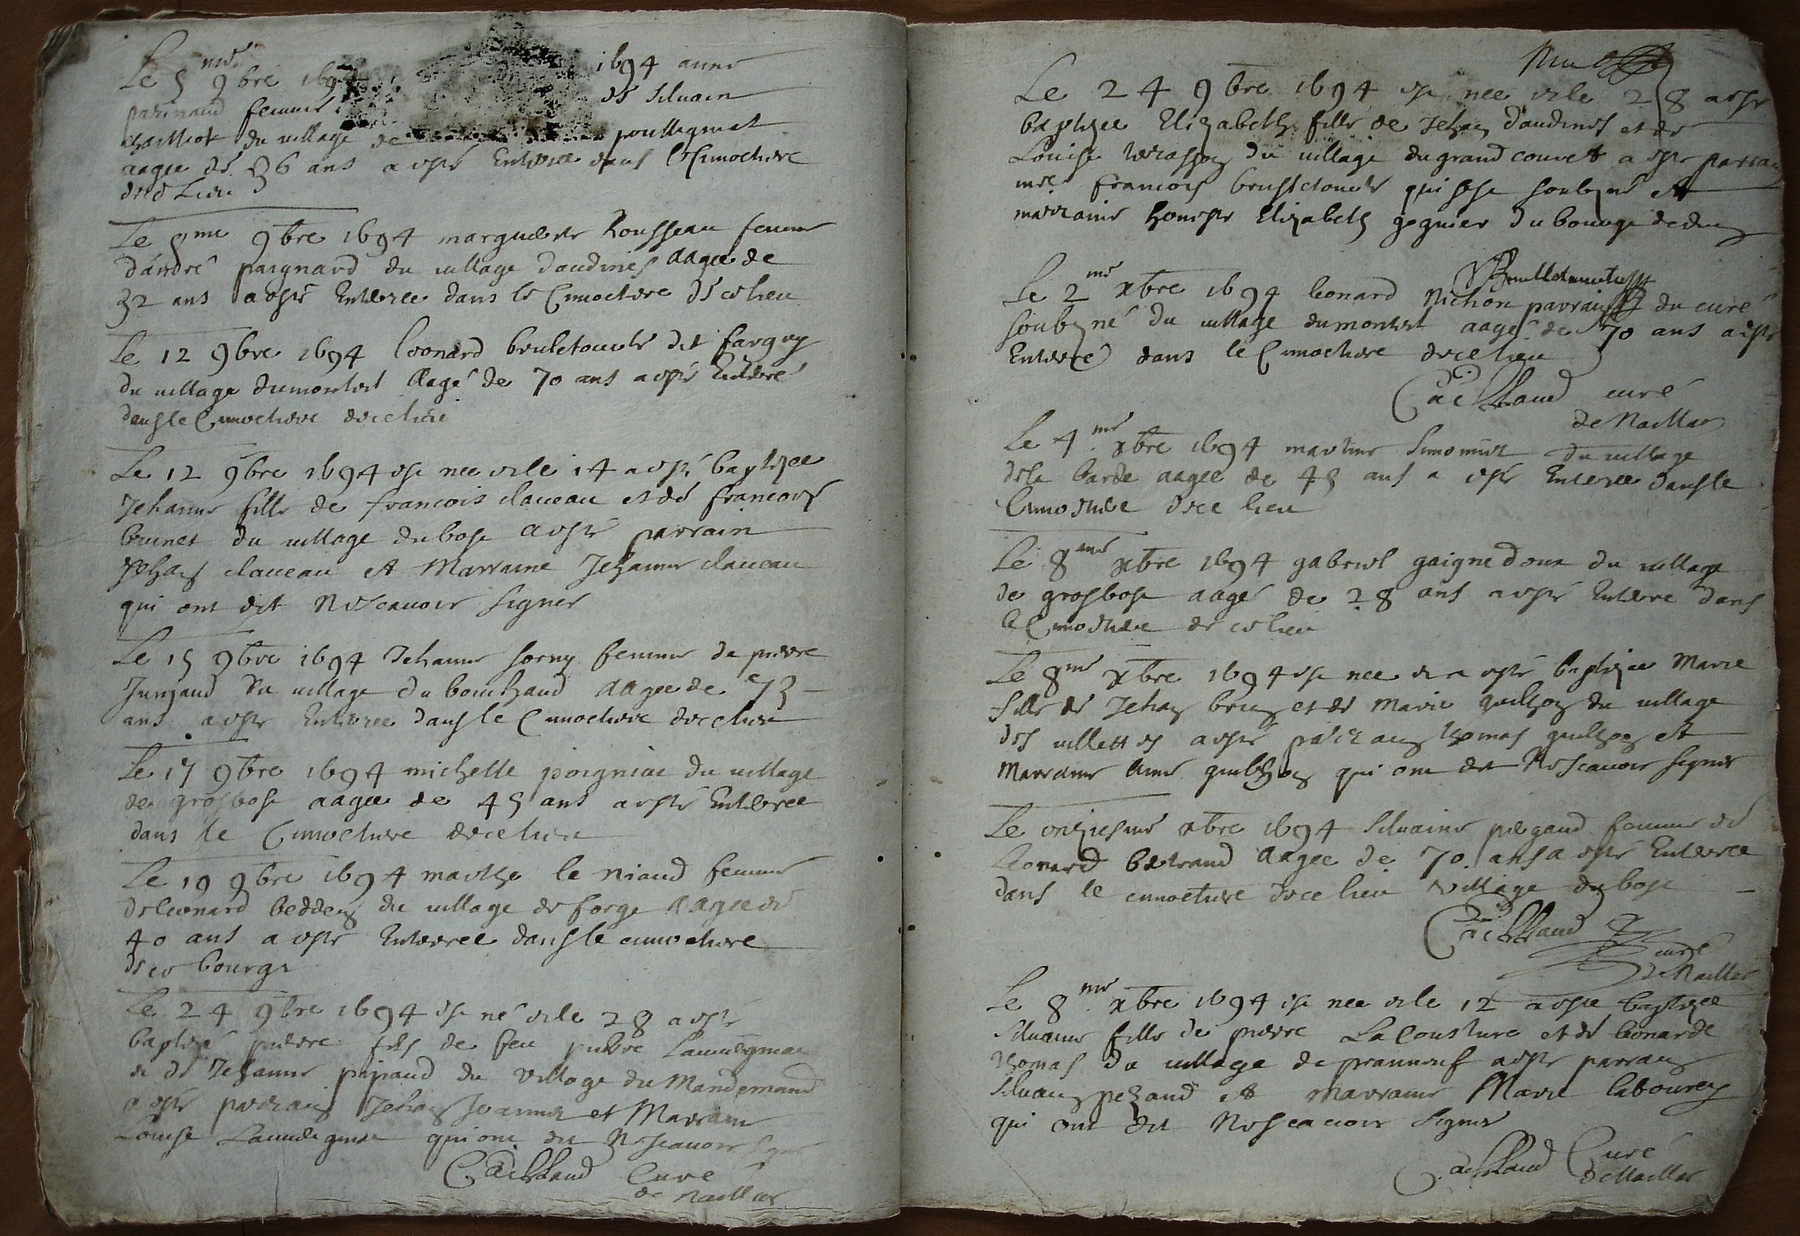 Le 5 me 9bre 1694 1694 anne
parinaud femme de siluain
du village de poulligniat
aagee de 36 ans a esté Enterree dans le Cimoetiere
de ce Lieu
Le 5 me 9bre 1694 marguerite Rousseau femme
d'andré paignard du village daudines aagee de
32 ans a esté Enterree dans le Cimoetiere de ce lieu
Le 12 9bre 1694 leonard brulletourte dit fargny
du village dumontet aagé de 70 ans a esté Enterré
dans le Cimoetiere de ce lieu
Le 12 9bre 1694 est nee et le 14 a esté baptizee
Jehanne fille de francois claueau et de francoise
brunet du village du bost a esté parrain
Jehan claueau et Marraine Jehanne claueau
qui ont dit Ne scauoir signer
Le 15 9bre 1694 Jehanne sorny femme de pierre
Junjaud du village du bouchaud aagee de 73
ans a esté Enterree dans le Cimoetiere de ce lieu
Le 17 9bre 1694 michelle poigniac du village
de grosbost aagee de 45 ans a esté Enterree
dans le Cimoetiere de ce lieu
Le 19 9bre 1694 marthe le niaud femme
de leonard beddeau du village de forge aagee de
40 ans a esté Enterree dans le cimoetiere
de ce bourgt
Le 24 9bre 1694 est né et le 28 a esté
baptizé pierre fils de feu pierre Lauuergniac
et de Jehanne pipaud du village du Mandemand
a esté parrain Jehan Joannet et Marraine
Louise qui ont dit Ne scauoir signer
Cacillaud Curé
de Naillac
Le 24 9bre 1694 est nee et le 28 a este
baptizee Elizabeth fille de Jehan daudines et de
Louise du village du grand couret a este parrain
mre francois brulletourte qui sest soubzné et
marraine honeste Elizabeth gognier du bourg de dun
Brulletourte
Le 2 me xbre 1694 leonard Nichon parrain du curé
soubzné du village dumontet aagé de 70 ans a esté
Enterré dans le Cimoetiere de ce lieu
Cacillaud curé
de Naillac
Le 4 me xbre 1694 martine Simonnet du village
de la barde aagee de 45 ans a esté Enterree dans le
Cimoetiere de ce lieu
Le 8 me xbre 1694 gabriel gaignedoux du village
de grosbost aagé de 28 ans a esté Enterre dans
le Cimoetiere de ce lieu
Le 8 me xbre 1694 est nee et a esté baptizee Marie
fille de Jehan brun et de Marie guilhon du village
des villettes a esté parrain thomas guilhon et
Marraine Anne guilhon qui ont dit Ne scauoir signer
Le onziesme xbre 1694 Siluaine pregaud femme de
Leonard bertrand aagee de 70 ans a esté Enterree
dans le cimoetiere de ce lieu village du bost
Cacillaud
curé
de Naillac
Le 8 me xbre 1694 est nee et le 12 a este baptizee
siluaine fille de pierre Lacousture et de leonarde
thomas du village de a esté parrain
siluain pezaud et marraine Marie laboureu
qui ont dit Ne scauoir signer
Cacillaud Curé
de Naillac